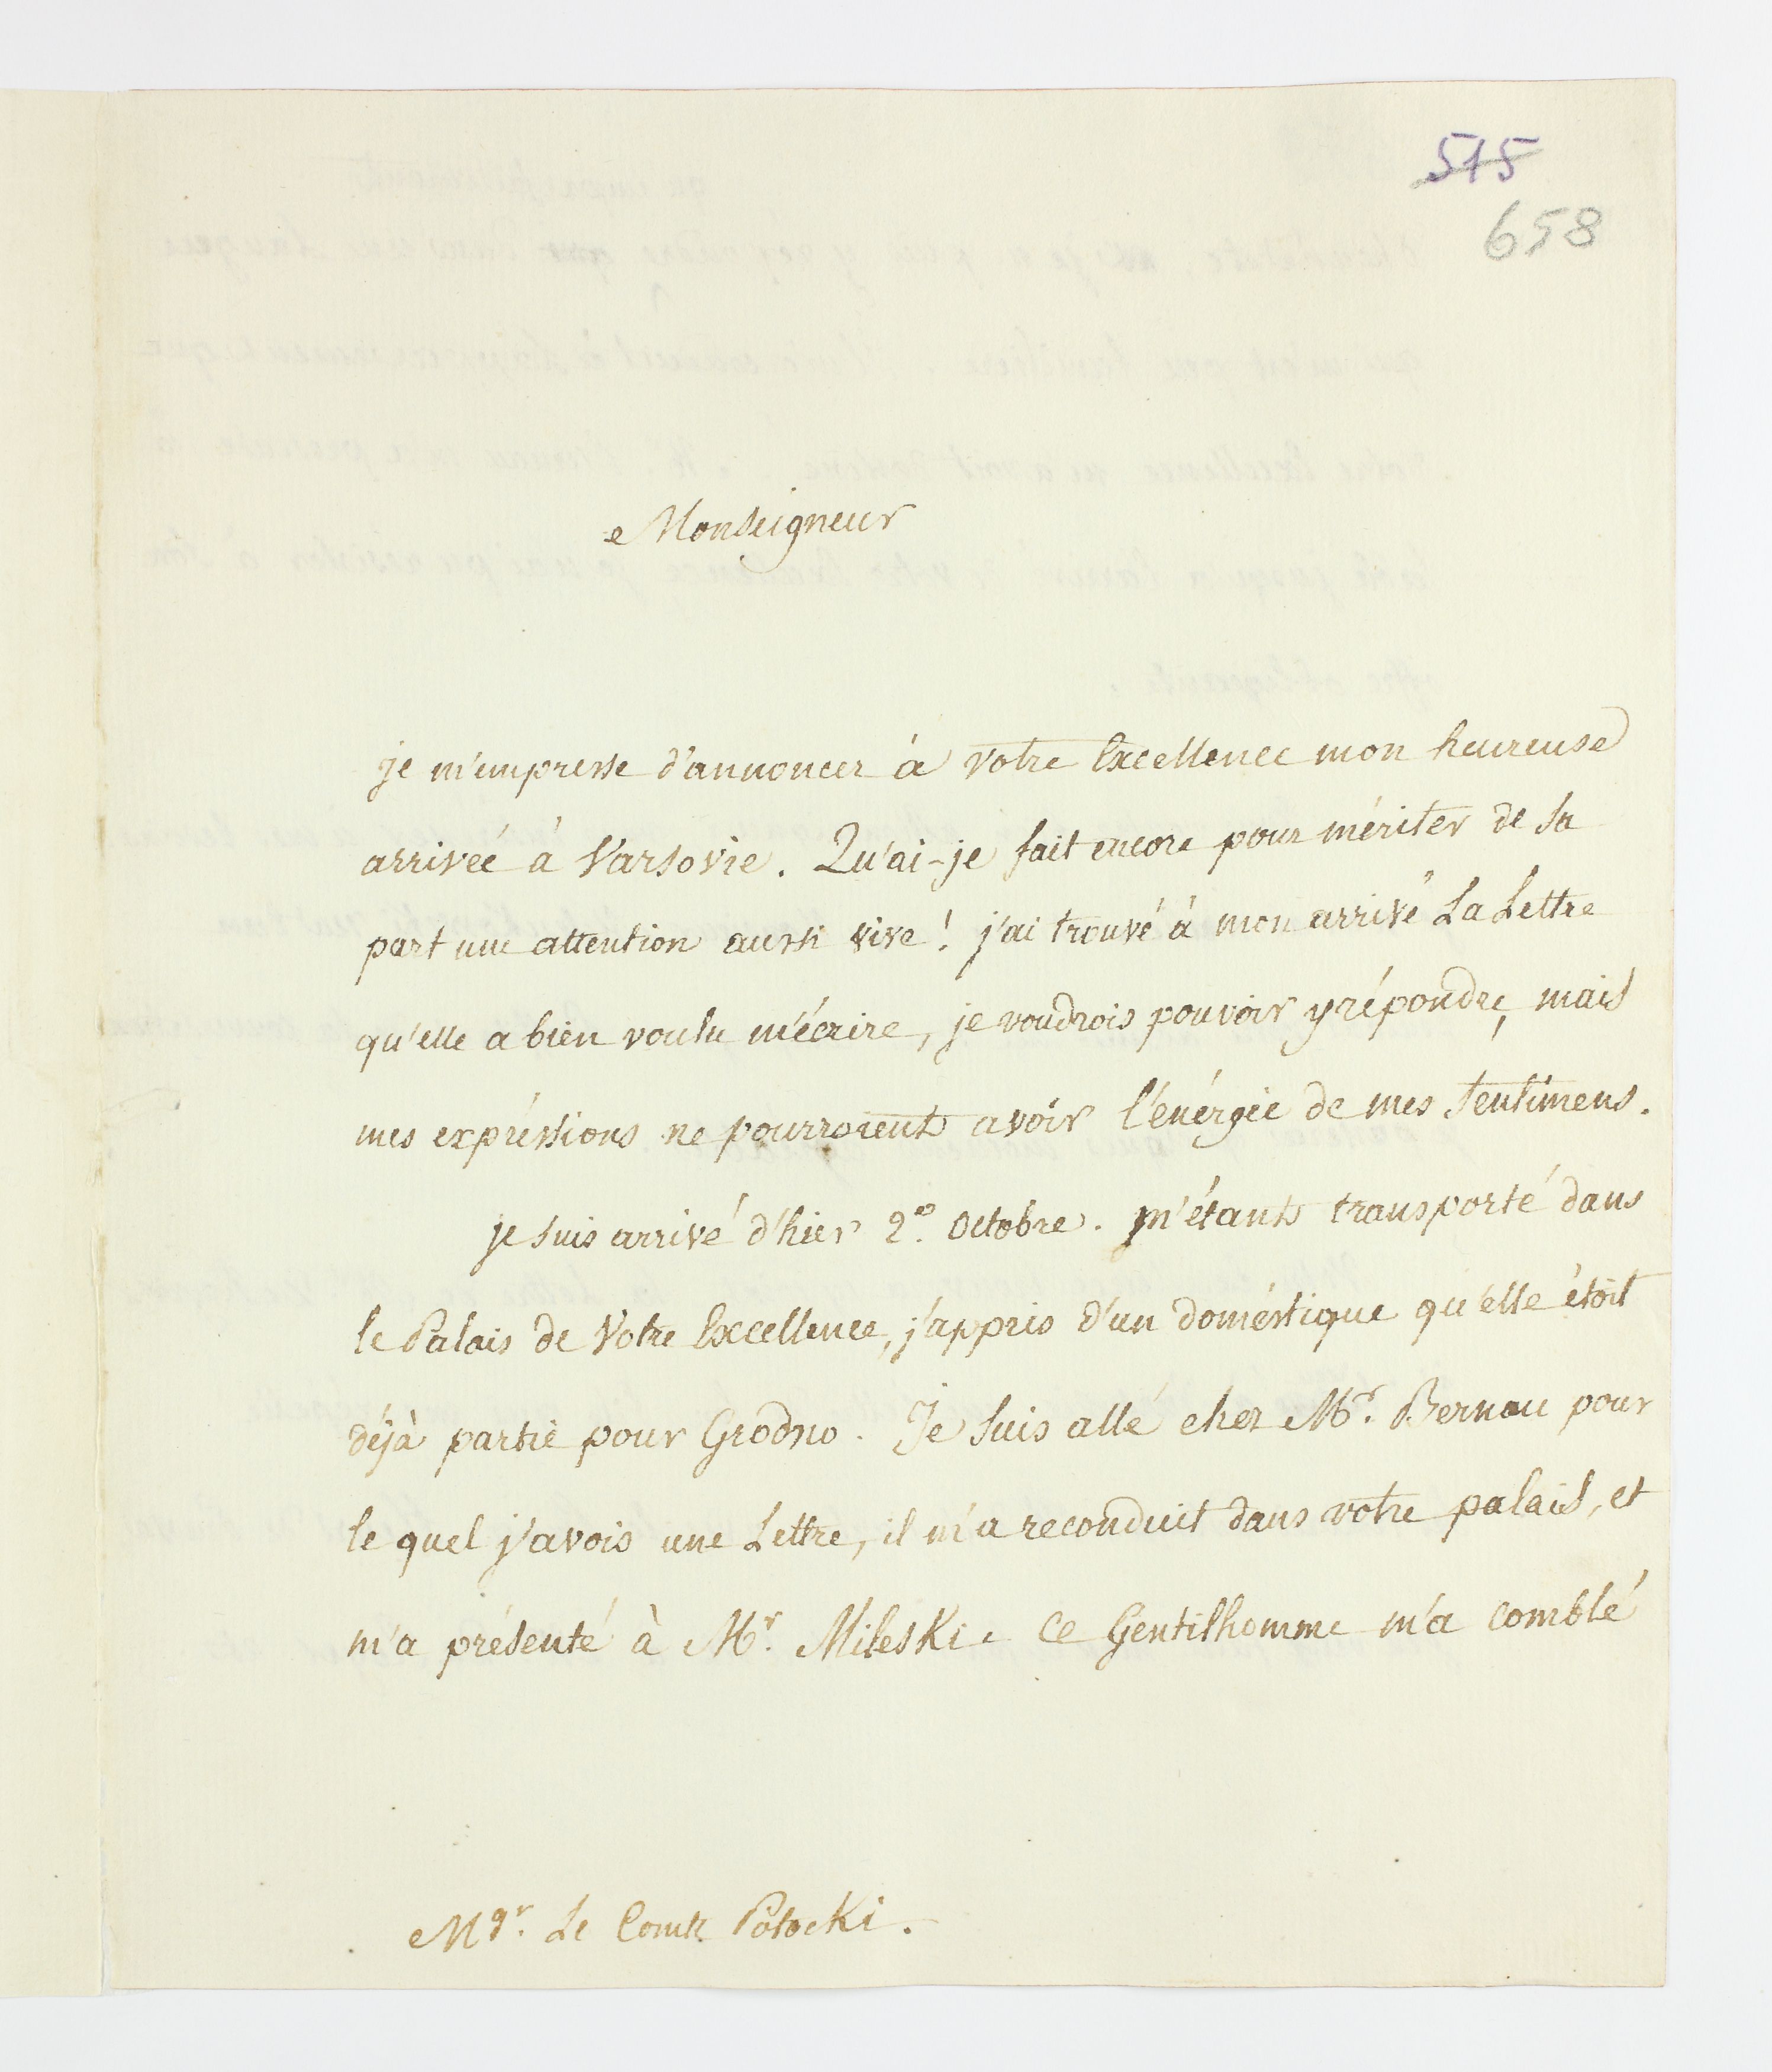 515
658
Monseigneur
je m'empresse d'annoncer à Votre Excellence mon heureuse
arriveé à Varsovie. Qu'ai-je fait encore pour mériter de sa
part une attention aussi vive! j'ai trouvé à mon arrivé La Lettre
qu'elle a bien voulu m'écrire, je voudrois pouvoir y répondre, mais
mes expréssions ne pourroient avoir l'énérgie de mes sentimens.
je suis arrivé d'hier 2.º Octobre. m'étant transporté dans
le Palais de Votre Excellence, j'appris d'un doméstique qu'elle étoit
déjà partie pour Grodno. Je suis allé chez Mr. Bernau pour
le quel j'avois une Lettre, il m'a reconduit dans votre palais, et
m'a présenté à Mr. Mileski. Ce Gentilhomme m'a comblé
Mgr. Le Comte Potocki.